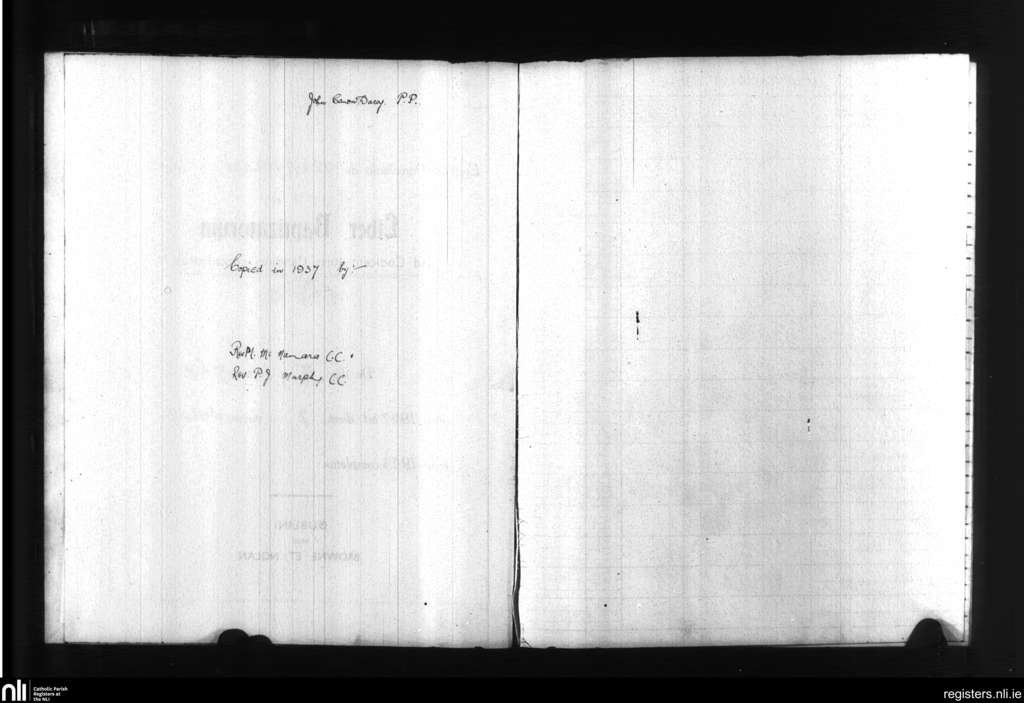 John Canon Darcy. P.P.
Liber Baptizatorum
Copied in 1937 by:-
Rev M. Mc Namara C.C.
Rev. P.J Murphy C.C.
DUBLIN:
BROWNE ET NOLAN
nli
Catholic Parish
Registers at
the NLI
registers.nli.ie